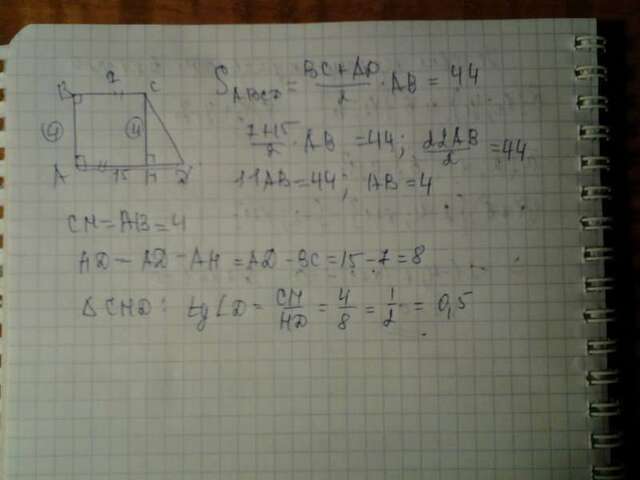 B 7 C
4 4
A 15 H D
S_ABCD = (BC + AD)/2 · AB = 44
(7+15)/2 · AB = 44; 22AB/2 = 44
11AB = 44; AB = 4
CH = AB = 4
HD = AD - AH = AD - BC = 15 - 7 = 8
Δ CHD: tg∠D = CH/HD = 4/8 = 1/2 = 0,5